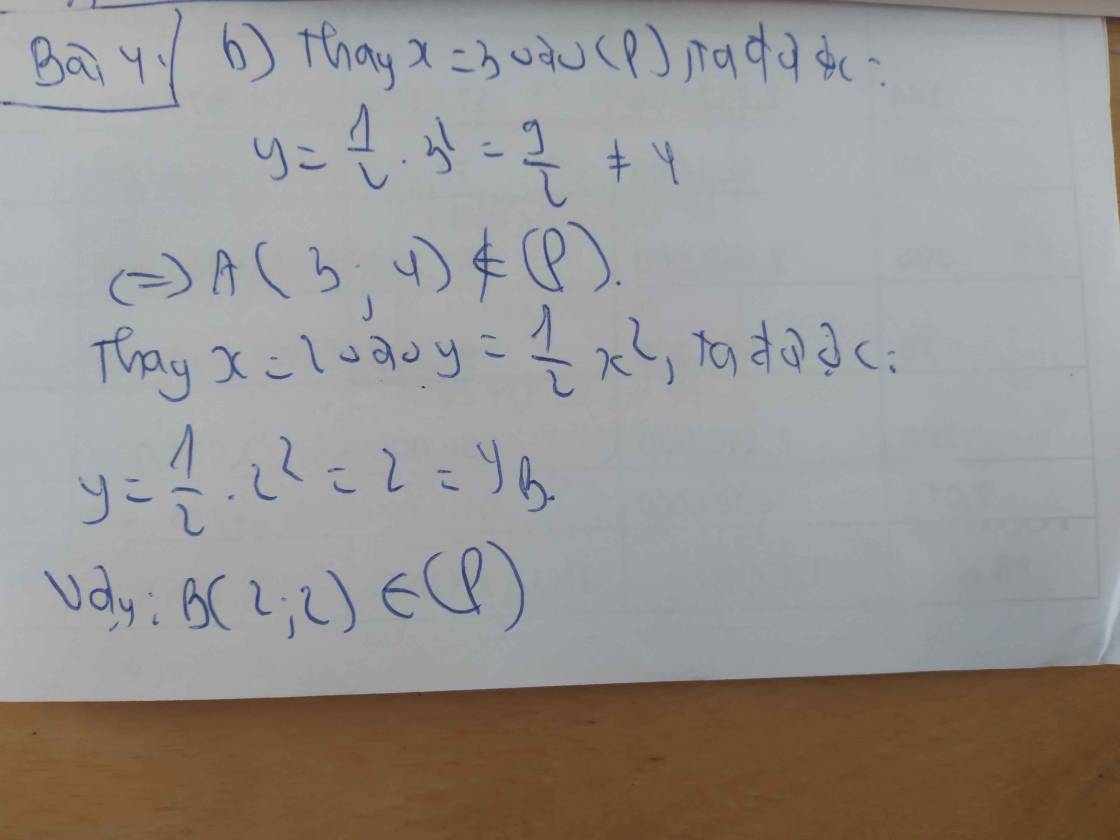 Bài 4: b) Thay x = 3 vào (P), ta được:
y = 1/2 . 3² = 9/2 ≠ 4
(=) A( 3 ; 4) ∉ (P).
Thay x = 2 vào y = 1/2 x², ta được:
y = 1/2 . 2² = 2 = y_B.
Vậy: B( 2 ; 2) ∈ (P)